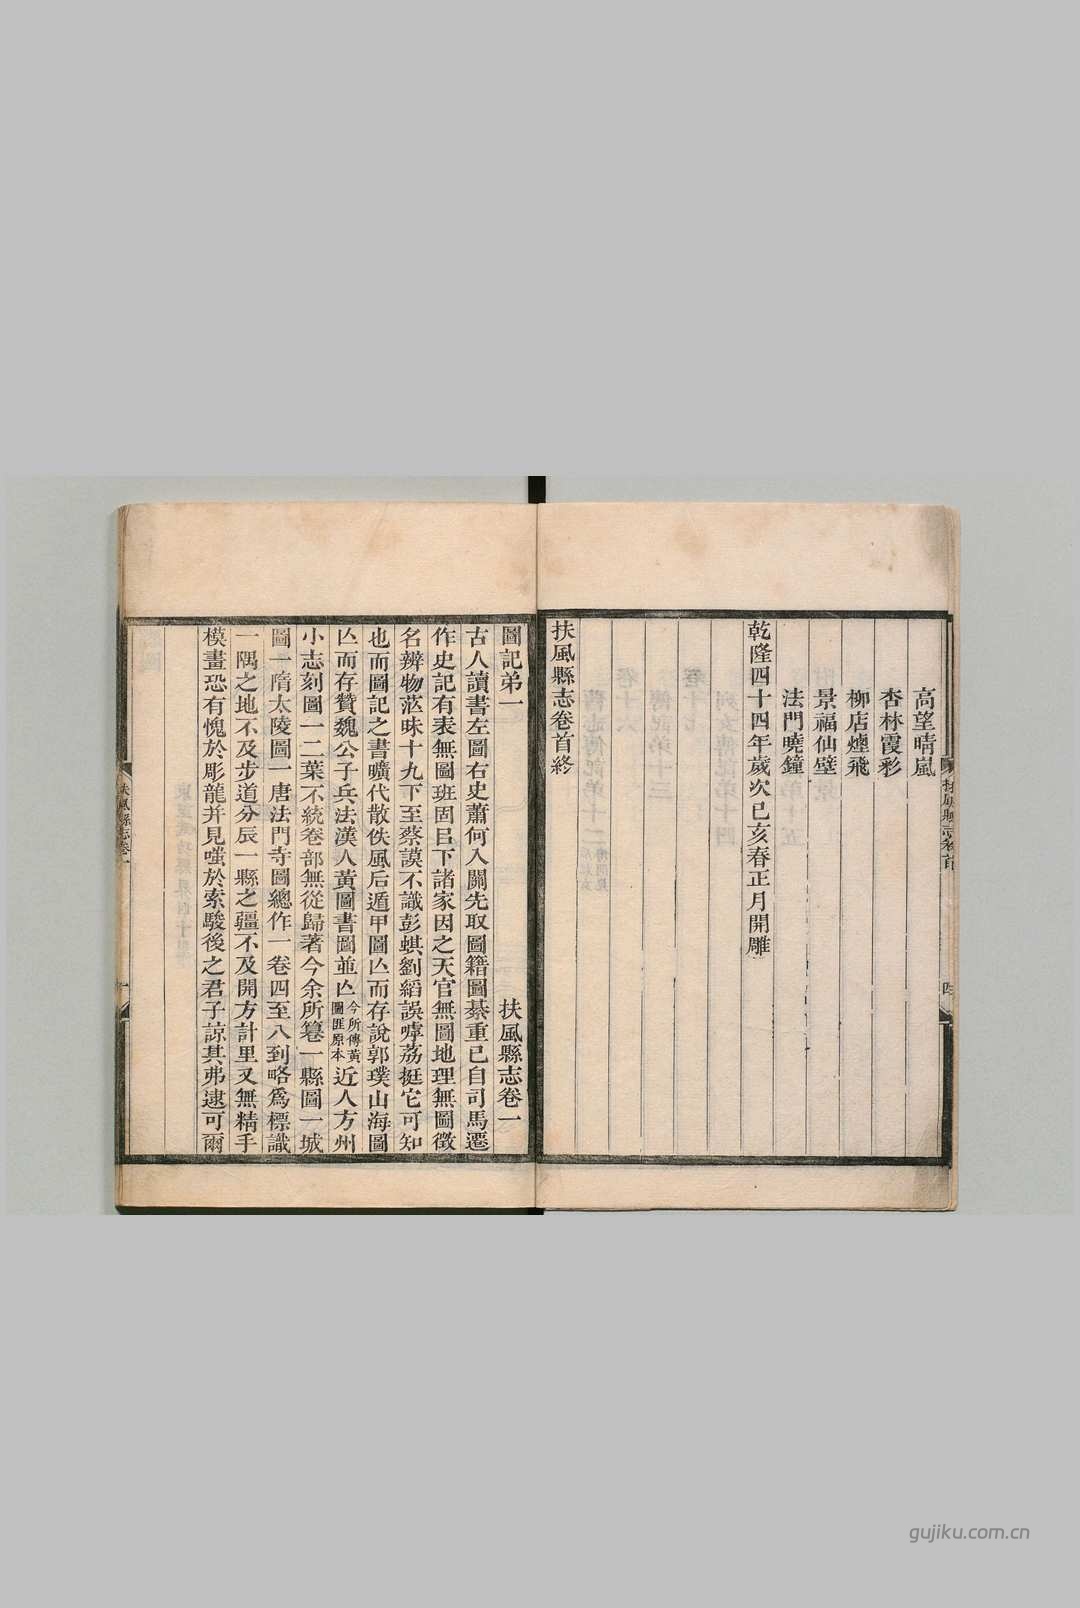 高望晴嵐
杏林霞彩
柳店煙飛
景福仙壁
法門曉鐘
乾隆四十四年歲次已亥春正月開雕
扶風縣志卷首終
扶風縣志卷首
四
圖記弟一
扶風縣志卷一
古人讀書左圖右史蕭何入關先取圖籍圖綦重已自司馬遷
作史記有表無圖班固㠯下諸家因之天官無圖地理無圖徵
名辨物茫昧十九下至蔡謨不識彭蜞劉縚誤嘑荔挺它可知
也而圖記之書曠代散佚風后遁甲圖亾而存說郭璞山海圖
亾而存贊魏公子兵法漢人黃圖書圖並亾今所傳黃圖匪原本近人方州
小志刻圖一二葉不統卷部無從歸著今余所篹一縣圖一城
圖一隋太陵圖一唐法門寺圖總作一卷四至八到略爲標識
一隅之地不及步道分辰一縣之疆不及開方計里又無精手
模畫恐有愧於彫龍并見嗤於索駿後之君子諒其弗逮可爾
扶風縣志卷一
一
gujiku.com.cn